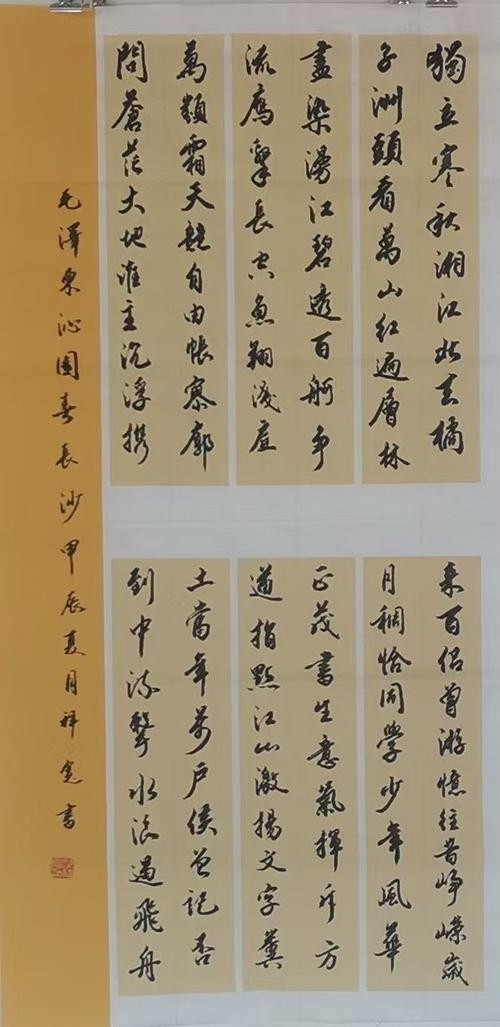 獨立寒秋湘江北去橘
子洲頭看萬山红遍層林
盡染漫江碧透百舸争
流鷹擊長空魚翔淺底
萬類霜天競自由悵寥廓
問蒼茫大地誰主沉浮携
来百侣曾游憶往昔峥嵘歲
月稠恰同學少年風華
正茂書生意氣揮斥方
遒指點江山激揚文字糞
土當年萬户侯曾記否
到中流擊水浪遏飛舟
毛澤東沁園春長沙甲辰夏月祥書